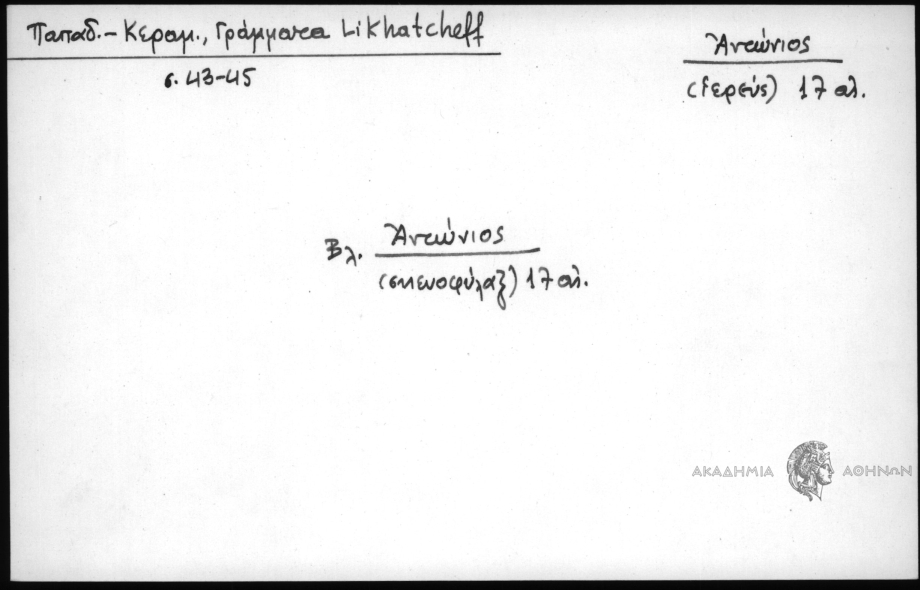 Παπαδ.-Κεραμ., Γράμματα Likhatcheff
σ. 43-45
Ἀντώνιος
(ἱερεύς) 17 αἰ.
Βλ. Ἀντώνιος
(σκευοφύλαξ) 17 αἰ.
ΑΚΑΔΗΜΙΑ ΑΘΗΝΩΝ